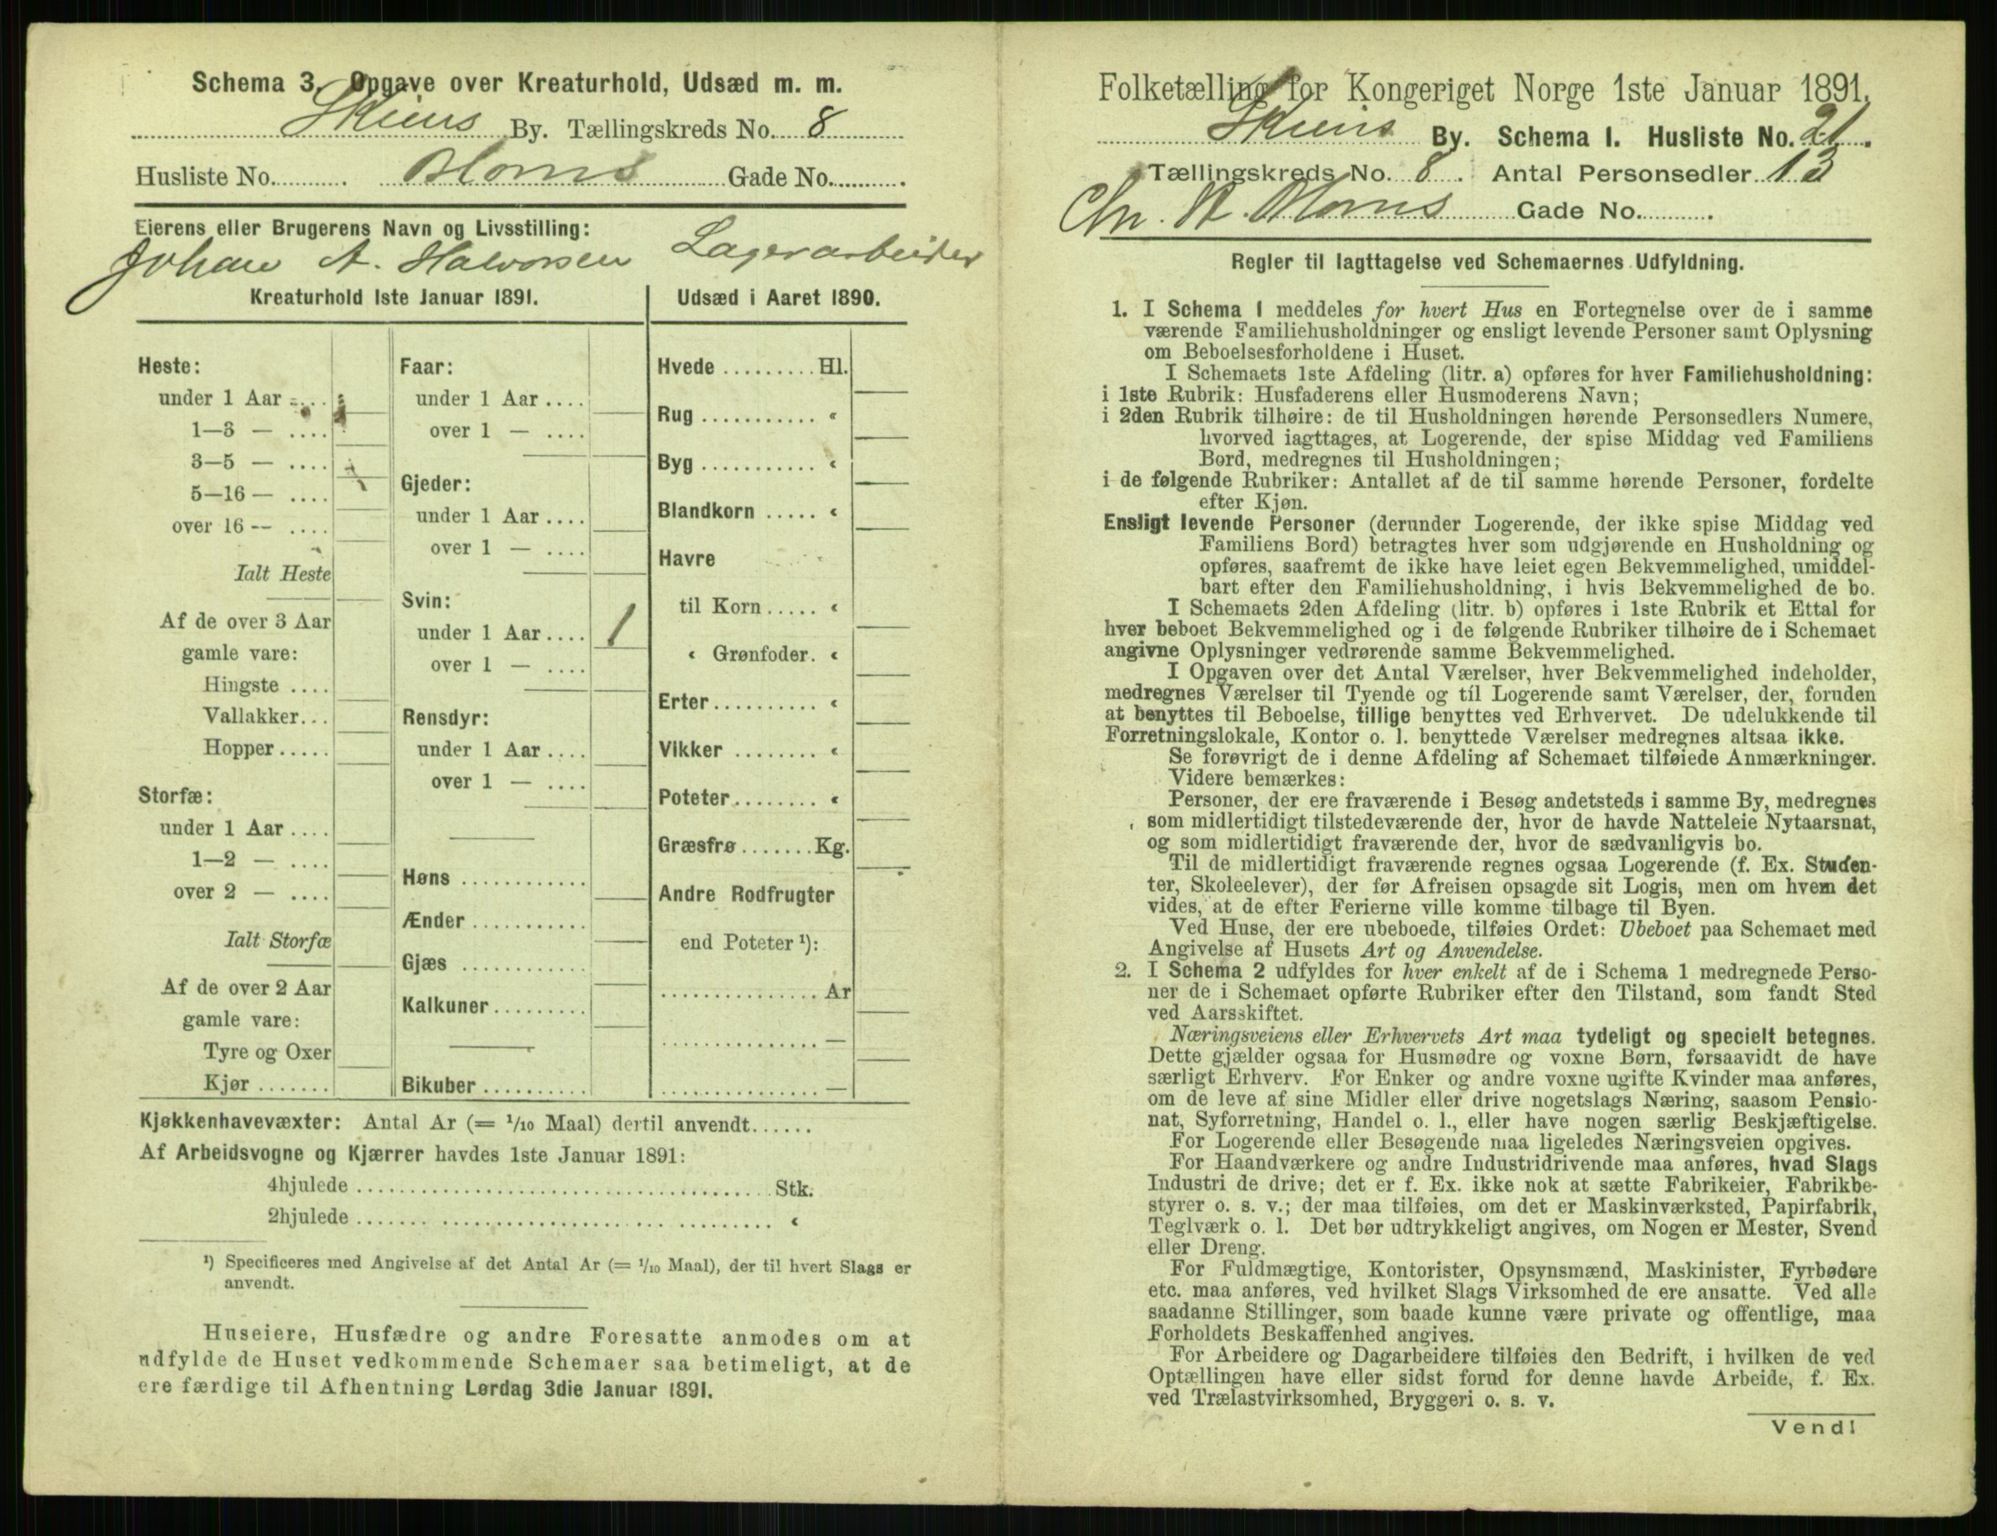 Schema 3. Opgave over Kreaturhold, Udsæd m. m.
Skiens By. Tællingskreds No. 8
Husliste No. Bloms Gade No.
Eierens eller Brugerens Navn og Livsstilling:
Johan A. Halvorsen Lagerarbeider
Kreaturhold 1ste Januar 1891.
Heste:
under 1 Aar
1—3 —
3—5 —
5—16 —
over 16 —
Ialt Heste
Af de over 3 Aar
gamle vare:
Hingste
Vallakker
Hopper
Storfæ:
under 1 Aar
1—2 —
over 2 —
Ialt Storfæ
Af de over 2 Aar
gamle vare:
Tyre og Oxer
Kjør
Faar:
under 1 Aar
over 1 —
Gjeder:
under 1 Aar
over 1 —
Svin:
under 1 Aar 1
over 1 —
Rensdyr:
under 1 Aar
over 1 —
Høns
Ænder
Gjæs
Kalkuner
Bikuber
Udsæd i Aaret 1890.
Hvede Hl.
Rug «
Byg «
Blandkorn «
Havre
til Korn «
« Grønfoder. «
Erter «
Vikker «
Poteter «
Græsfrø Kg.
Andre Rodfrugter
end Poteter ¹):
Ar
—
—
Kjøkkenhavevæxter: Antal Ar (= 1/10 Maal) dertil anvendt
Af Arbeidsvogne og Kjærrer havdes 1ste Januar 1891:
4hjulede Stk.
2hjulede «
¹) Specificeres med Angivelse af det Antal Ar (= 1/10 Maal), der til hvert Slags er
anvendt.
Huseiere, Husfædre og andre Foresatte anmodes om at
udfylde de Huset vedkommende Schemaer saa betimeligt, at de
ere færdige til Afhentning Lørdag 3die Januar 1891.
Folketælling for Kongeriget Norge 1ste Januar 1891.
Skiens By. Schema 1. Husliste No. 21
Tællingskreds No. 8. Antal Personsedler 13
Chr. Bloms Gade No.
Regler til Iagttagelse ved Schemaernes Udfyldning.
1. I Schema 1 meddeles for hvert Hus en Fortegnelse over de i samme
værende Familiehusholdninger og ensligt levende Personer samt Oplysning
om Beboelsesforholdene i Huset.
I Schemaets 1ste Afdeling (litr. a) opføres for hver Familiehusholdning:
i 1ste Rubrik: Husfaderens eller Husmoderens Navn;
i 2den Rubrik tilhøire: de til Husholdningen hørende Personsedlers Numere,
hvorved iagttages, at Logerende, der spise Middag ved Familiens
Bord, medregnes til Husholdningen;
i de følgende Rubriker: Antallet af de til samme hørende Personer, fordelte
efter Kjøn.
Ensligt levende Personer (derunder Logerende, der ikke spise Middag ved
Familiens Bord) betragtes hver som udgjørende en Husholdning og
opføres, saafremt de ikke have leiet egen Bekvemmelighed, umiddel-
bart efter den Familiehusholdning, i hvis Bekvemmelighed de bo.
I Schemaets 2den Afdeling (litr. b) opføres i 1ste Rubrik et Ettal for
hver beboet Bekvemmelighed og i de følgende Rubriker tilhøire de i Schemaet
angivne Oplysninger vedrørende samme Bekvemmelighed.
I Opgaven over det Antal Værelser, hver Bekvemmelighed indeholder,
medregnes Værelser til Tyende og til Logerende samt Værelser, der, foruden
at benyttes til Beboelse, tillige benyttes ved Erhvervet. De udelukkende til
Forretningslokale, Kontor o. l. benyttede Værelser medregnes altsaa ikke.
Se forøvrigt de i denne Afdeling af Schemaet tilføiede Anmærkninger.
Videre bemærkes:
Personer, der ere fraværende i Besøg andetsteds i samme By, medregnes
som midlertidigt tilstedeværende der, hvor de havde Natteleie Nytaarsnat,
og som midlertidigt fraværende der, hvor de sædvanligvis bo.
Til de midlertidigt fraværende regnes ogsaa Logerende (f. Ex. Studen-
ter, Skoleelever), der før Afreisen opsagde sit Logis, men om hvem det
vides, at de efter Ferierne ville komme tilbage til Byen.
Ved Huse, der ere ubeboede, tilføies Ordet: Ubeboet paa Schemaet med
Angivelse af Husets Art og Anvendelse.
2. I Schema 2 udfyldes for hver enkelt af de i Schema 1 medregnede Perso-
ner de i Schemaet opførte Rubriker efter den Tilstand, som fandt Sted
ved Aarsskiftet.
Næringsveiens eller Erhvervets Art maa tydeligt og specielt betegnes.
Dette gjælder ogsaa for Husmødre og voxne Børn, forsaavidt de have
særligt Erhverv. For Enker og andre voxne ugifte Kvinder maa anføres,
om de leve af sine Midler eller drive nogetslags Næring, saasom Pensio-
nat, Syforretning, Handel o. l., eller have nogen særlig Beskjæftigelse.
For Logerende eller Besøgende maa ligeledes Næringsveien opgives.
For Haandværkere og andre Industridrivende maa anføres, hvad Slags
Industri de drive; det er f. Ex. ikke nok at sætte Fabrikeier, Fabrikbe-
styrer o. s. v.; der maa tilføies, om det er Maskinværksted, Papirfabrik,
Teglværk o. l. Det bør udtrykkeligt angives, om Nogen er Mester, Svend
eller Dreng.
For Fuldmægtige, Kontorister, Opsynsmænd, Maskinister, Fyrbødere
etc. maa anføres, ved hvilket Slags Virksomhed de ere ansatte. Ved alle
saadanne Stillinger, som baade kunne være private og offentlige, maa
Forholdets Beskaffenhed angives.
For Arbeidere og Dagarbeidere tilføies den Bedrift, i hvilken de ved
Optællingen have eller sidst forud for denne havde Arbeide, f. Ex.
ved Trælastvirksomhed, Bryggeri o. s. v.
Vend!